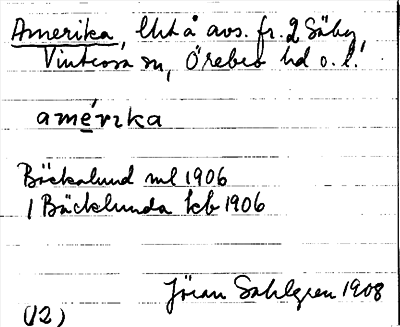 Amerika, lht å avs. fr. 2 Säby,
Vintrosa sn, Örebro hd o. l.
amérika
Bäckalund ml 1906
1 Bäcklunda kb 1906
Jöran Sahlgren 1908
(12)